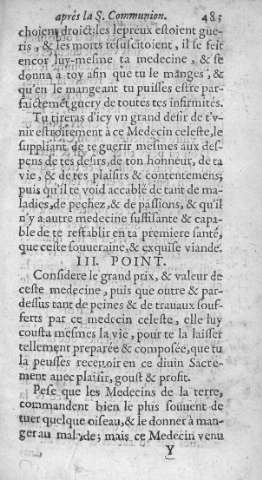 après la S. Communion. 483
choient droict: les lepreux estoient gue-
ris, & les morts resuscitoient, il se feit
encor luy-mesme ta medecine, & se
donna à toy afin que tu le manges, &
qu'en le mangeant tu puisses estre par-
faictemẽt guery de toutes tes infirmités.
Tu tireras d'icy vn grand desir de t'v-
nir estroittement à ce Medecin celeste, le
suppliant de te guerir mesmes aux des-
pens de tes desirs, de ton honneur, de ta
vie, & de tes plaisirs & contentemens;
puis qu'il te void accablé de tant de ma-
ladies, de pechez, & de passions, & qu'il
n'y a autre medecine suffisante & capa-
ble de te restablir en ta premiere santé,
que ceste souueraine, & exquise viande.
III. POINT.
Considere le grand prix, & valeur de
ceste medecine, puis que outre & par-
dessus tant de peines & de trauaux souf-
ferts par ce medecin celeste, elle luy
cousta mesmes la vie, pour te la laisser
tellement preparée & composée, que tu
la peusses receuoir en ce diuin Sacre-
ment auec plaisir, goust & profit.
Pẽse que les Medecins de la terre,
commandent bien le plus souuent de
tuer quelque oiseau, & le donner à man-
ger au malade; mais ce Medecin venu
Y